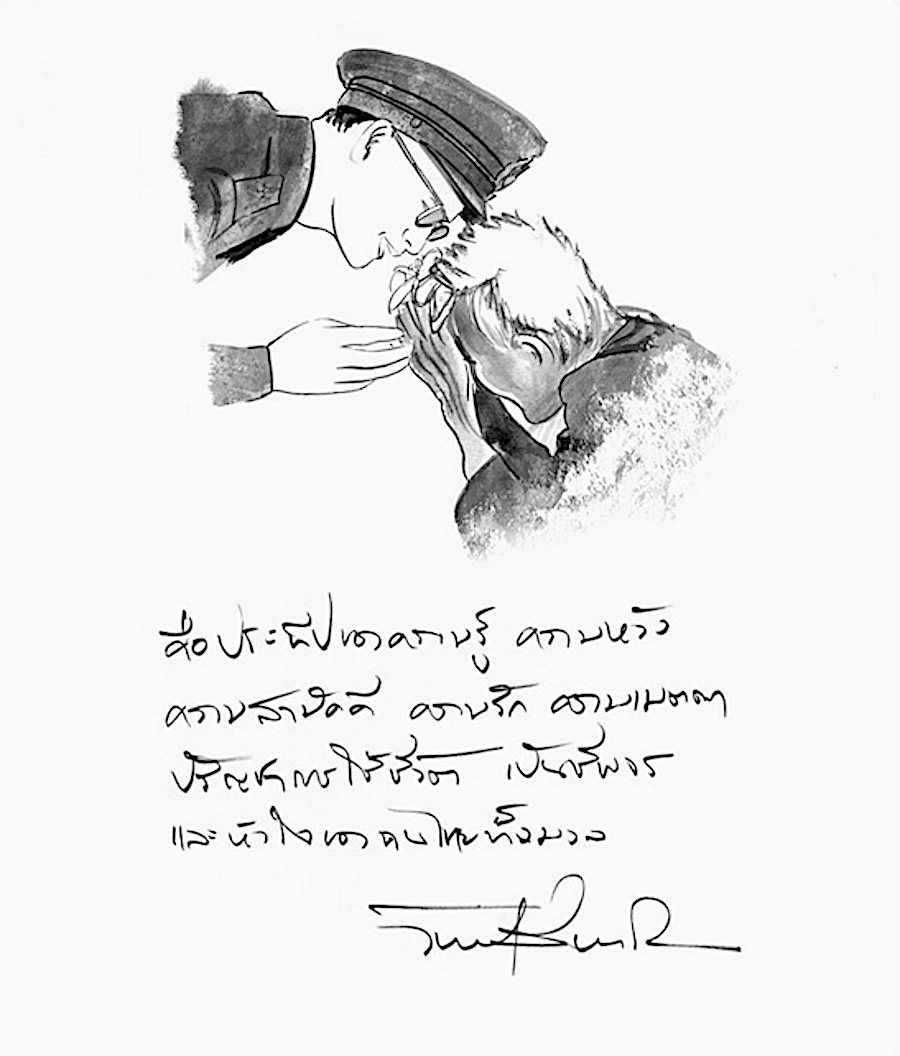 คือประทีปของความรู้ ความหวัง
ความสามัคคี ความรัก ความเมตตา
ปรัชญาการใช้ชีวิต เป็นชีพจร
และหัวใจของคนไทยทั้งมวล